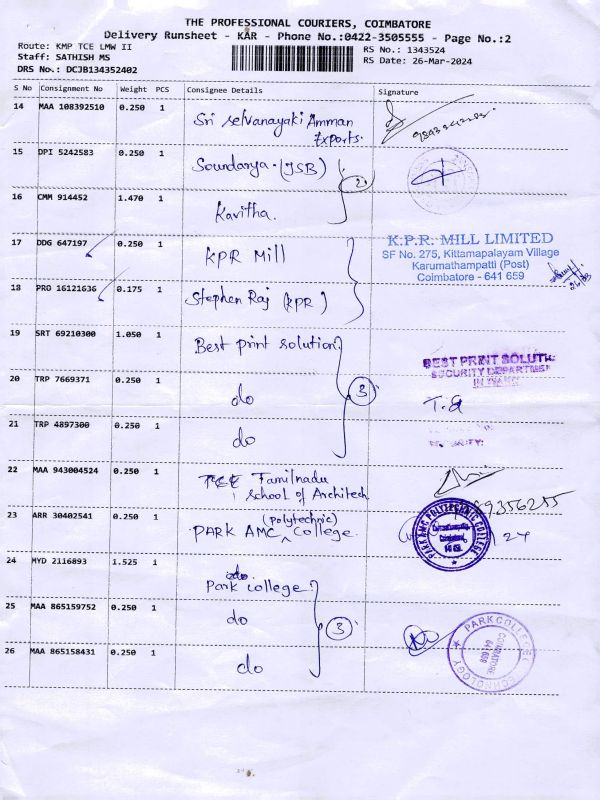 THE PROFESSIONAL COURIERS, COIMBATORE
Delivery Runsheet - KAR - Phone No.:0422-3505555 - Page No.:2
Route: KMP TCE LMW II
RS No.: 1343524
Staff: SATHISH MS
RS Date: 26-Mar-2024
DRS No.: DCJB134352402
S No Consignment No Weight PCS Consignee Details Signature
14 MAA 108392510 0.250 1 Sri Selvanayaki Amman
Exports.
15 DPI 5242583 0.250 1 Soundarya. (JSB)
2
16 CMM 914452 1.470 1 Kavitha.
17 DDG 647197 0.250 1 KPR Mill
K.P.R. MILL LIMITED
SF No. 275, Kittamapalayam Village
Karumathampatti (Post)
Coimbatore - 641 659
18 PRO 16121636 0.175 1 Stephen Raj (KPR)
19 SRT 69210300 1.050 1 Best print solution
BEST PRINT SOLUTI
SECURITY DEPARTMEN
20 TRP 7669371 0.250 1 do
3
21 TRP 4897300 0.250 1 do
22 MAA 943004524 0.250 1 Tamilnadu
School of Architech
23 ARR 30402541 0.250 1 PARK AMC (polytechnic) College.
PARK AMC POLYTECHNIC COLLEGE
24 MYD 2116893 1.525 1 do
Park college
25 MAA 865159752 0.250 1 do
3
26 MAA 865158431 0.250 1 do
PARK COLLEGE
TECHNOLOGY
COIMBATORE
641 659